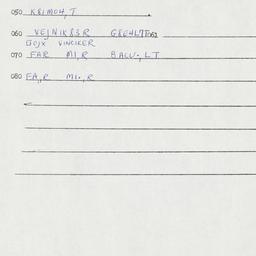 050 K8IMOH,T
060 VEJNIK83R G8EHL7T
GOJX VINCIKER
070 FAR MI,R BACU-,LT
080 FA,,R MI-,R